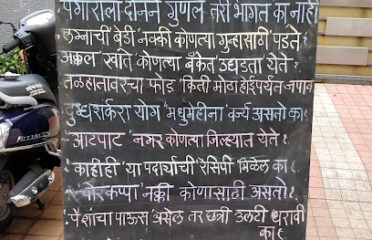 पगाराला दोनने गुणले तरी भागत का नाही
लग्नाची बेडी नक्की कोणत्या गुन्ह्यासाठी पडते
अक्कल खाते कोणत्या बँकेत उघडता येते?
तळहातावरचा फोड किती मोठा होईपर्यंत जपावा
दुग्धशर्करा योग मधुमेहींना वर्ज्य असतो का?
आटपाट नगर कोणत्या जिल्ह्यात येते?
'काहीही' या पदार्थाची रेसिपी मिळेल का?
चोरकप्पा नक्की कोणासाठी असतो?
'पैशाचा पाऊस' असेल तर छत्री उलटी धरावी
का?